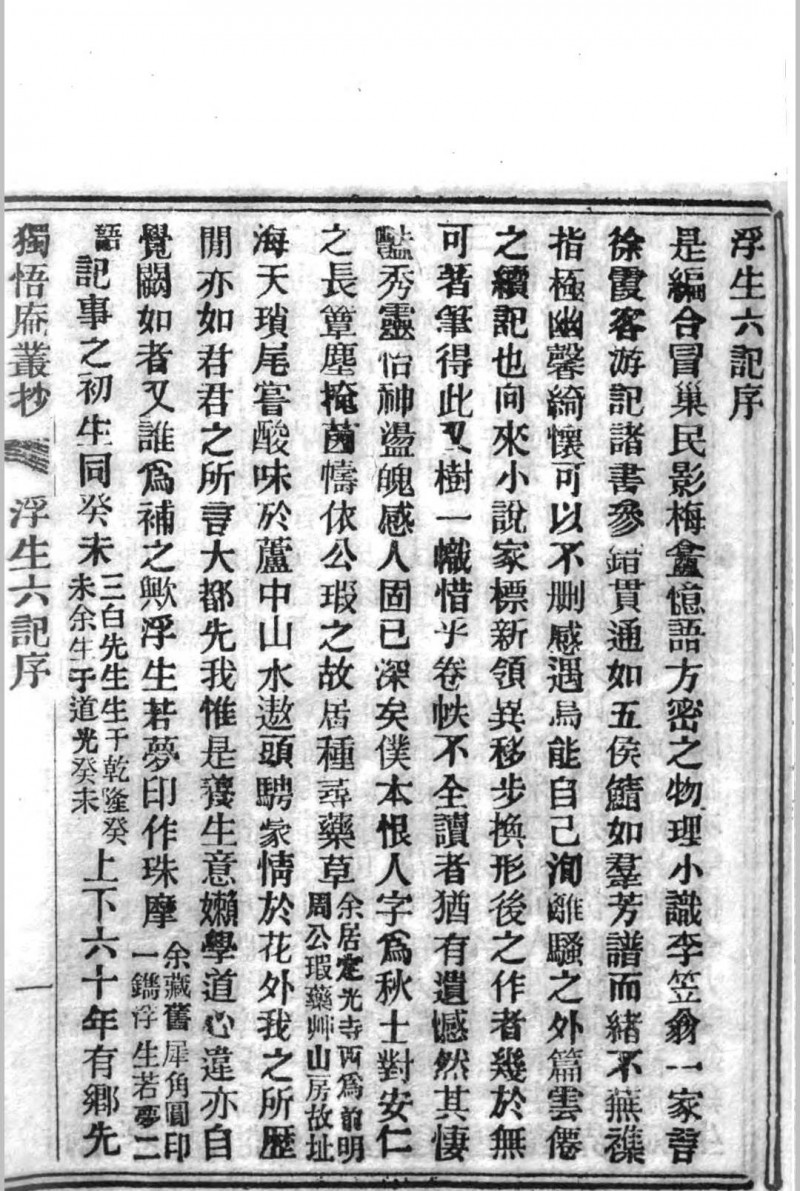 浮生六記序
是編合冒巢民影梅盦憶語方密之物理小識李笠翁一家言
徐霞客游記諸書參錯貫通如五侯鯖如羣芳譜而緒不蕪襍
指極幽馨綺懷可以不删感遇烏能自已洵離騷之外篇雲僊
之續記也向來小說家標新領異移步換形後之作者幾於無
可著筆得此又樹一幟惜乎卷帙不全讀者猶有遺憾然其悽
豔秀靈怡神盪魄感人固已深矣僕本恨人字為秋士對安仁
之長簟塵掩茵幬依公瑕之故居種尋藥草余居定光寺西為前明周公瑕藥艸山房故址
海天瑣尾嘗酸味於蘆中山水遨頭騁豪情於花外我之所歷
間亦如君君之所言大都先我惟是養生意嬾學道心違亦自
覺闕如者又誰為補之歟浮生若夢印作珠摩余藏舊犀角圓印一鐫浮生若夢二
語記事之初生同癸未三白先生生于乾隆癸未余生于道光癸未上下六十年有鄉先
獨悟庵叢抄
浮生六記序
一